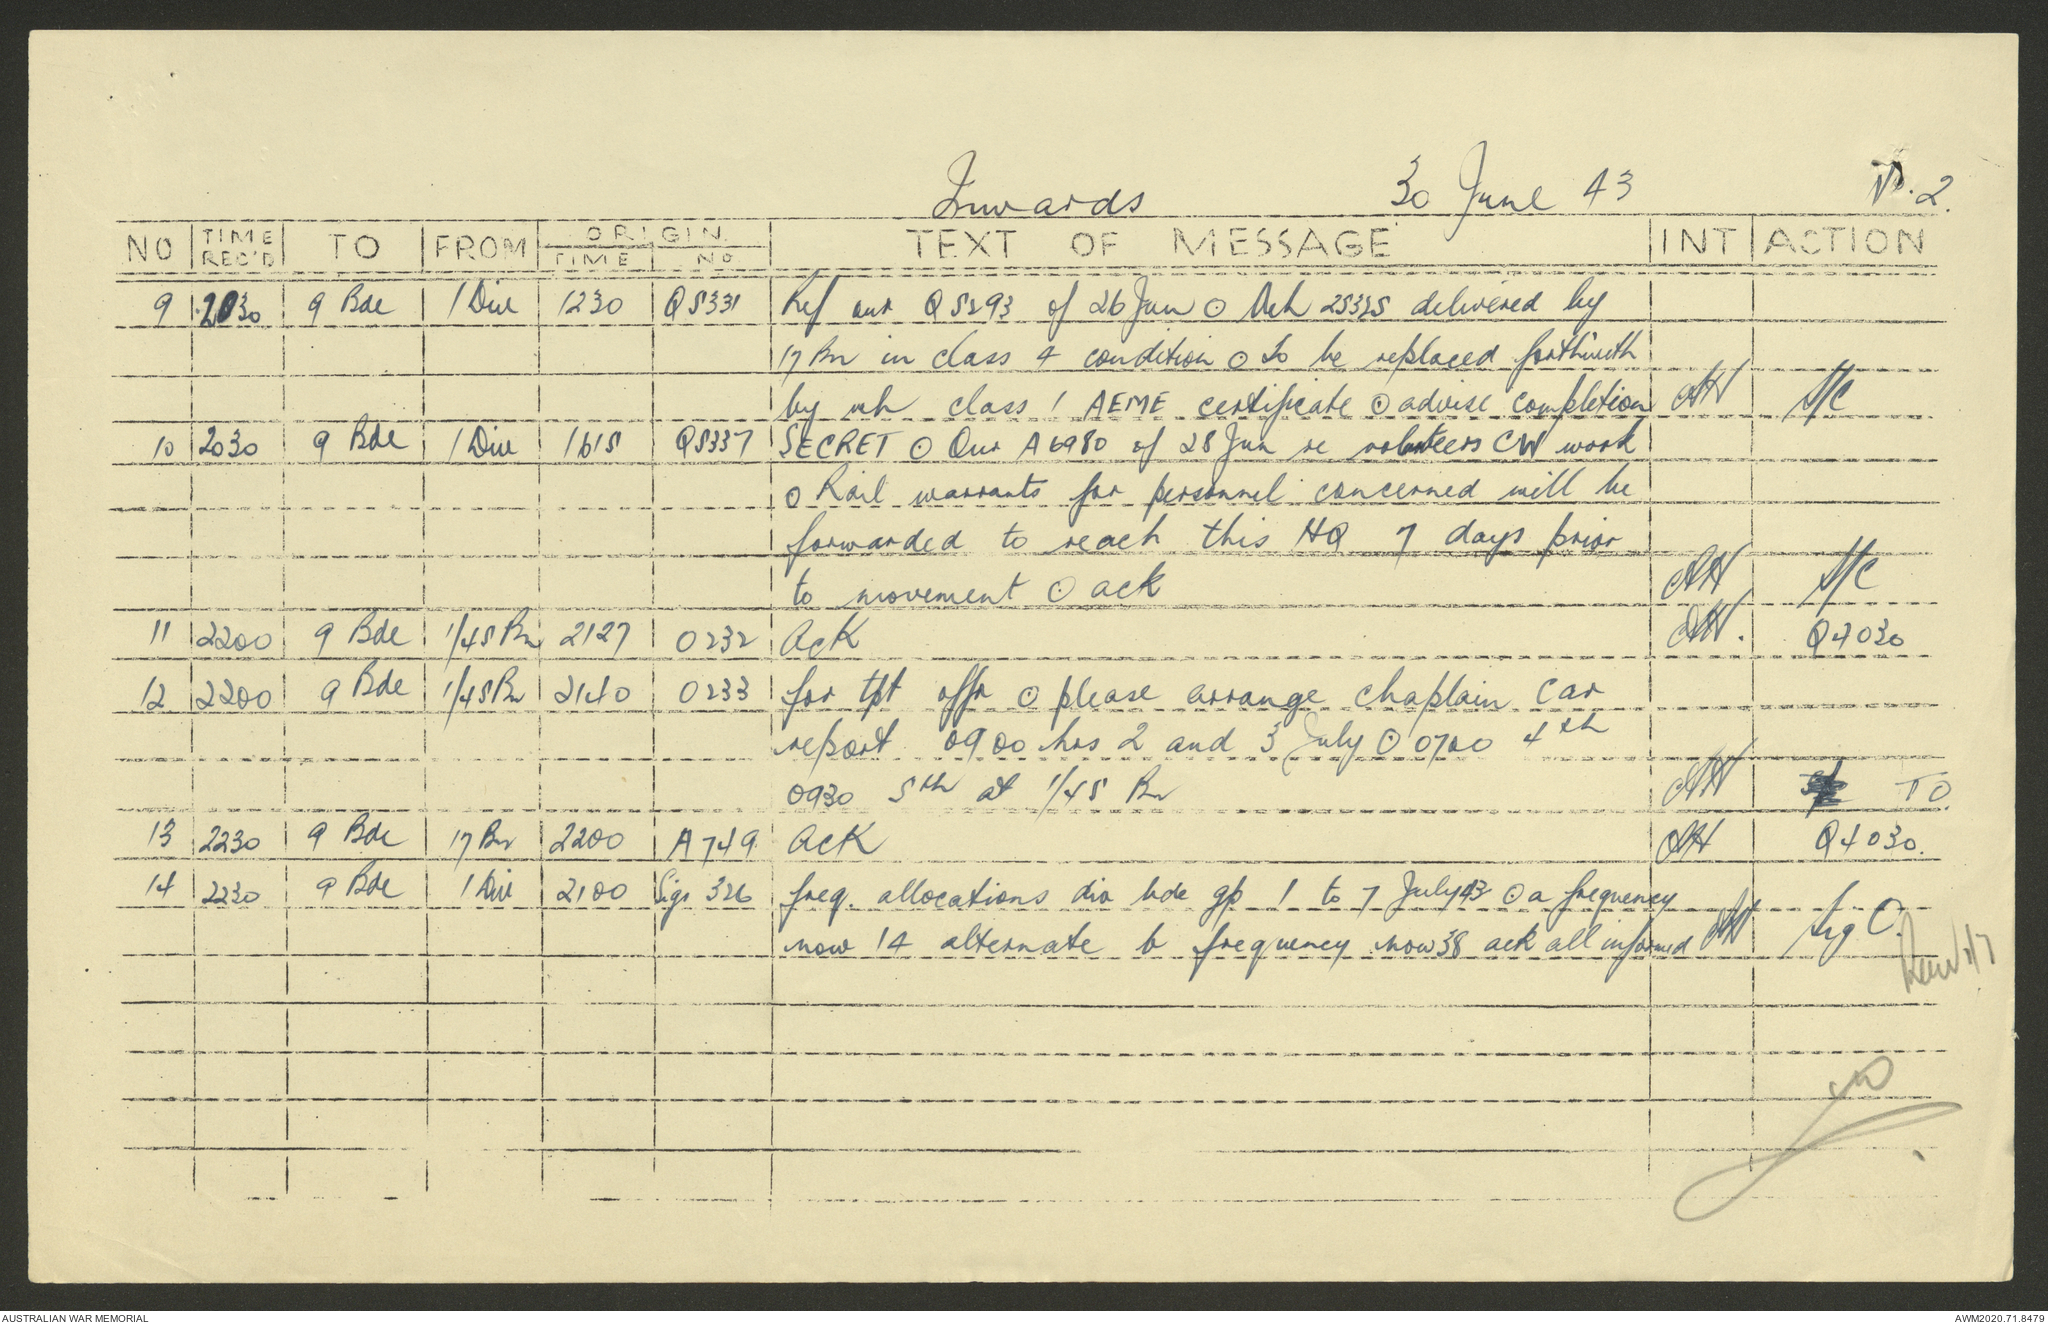 Inwards 30 June 43 P. 2.
NO TIME REC'D TO FROM ORIGIN TIME NO. TEXT OF MESSAGE INT ACTION
9 2030 9 Bde 1 Div 1230 Q5331 Ref our Q5293 of 26 Jun ⊙ Veh 25325 delivered by
17 Bn in class 4 condition ⊙ to be replaced forthwith
by veh class 1 AEME certificate ⊙ advise completion AH S/C
10 2030 9 Bde 1 Div 1615 Q5337 SECRET ⊙ Our A6980 of 28 Jun re volunteers CW work
⊙ Rail warrants for personnel concerned will be
forwarded to reach this HQ 7 days prior
to movement ⊙ ack AH S/C
11 2200 9 Bde 1/45 Bn 2127 O232 Ack AH. Q4030
12 2200 9 Bde 1/45 Bn 2140 O233 for tpt offr ⊙ please arrange chaplain car
report 0900 hrs 2 and 3 July ⊙ 0700 4th
0930 5th at 1/45 Bn AH TO.
13 2230 9 Bde 17 Bn 2200 A749 Ack AH Q4030.
14 2230 9 Bde 1 Div 2100 Sigs 326 freq. allocations div bde gp 1 to 7 July 43 ⊙ a frequency
now 14 alternate b frequency now 38 ack all informed AH Sig O.
AUSTRALIAN WAR MEMORIAL AWM2020.71.8479